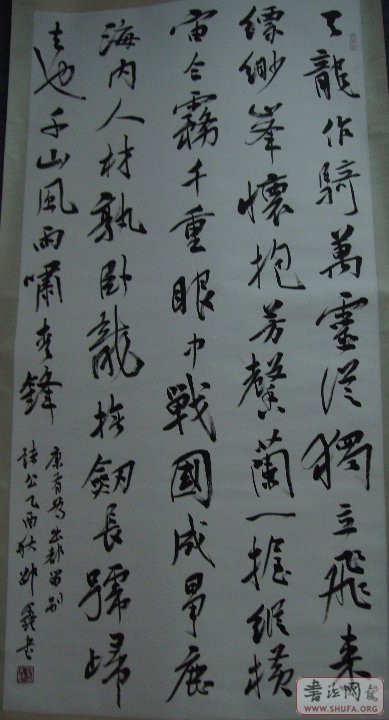 天龍作騎萬靈從獨立飛来
縹緲峯懷抱芳馨蘭一握縱橫
宙合霧千重眼中戰國成爭鹿
海内人材孰卧龍撫劒長號歸
去也千山風雨嘯青鋒
康有為出都留别
諸公乙酉秋書
書法网
WWW.SHUFA.ORG